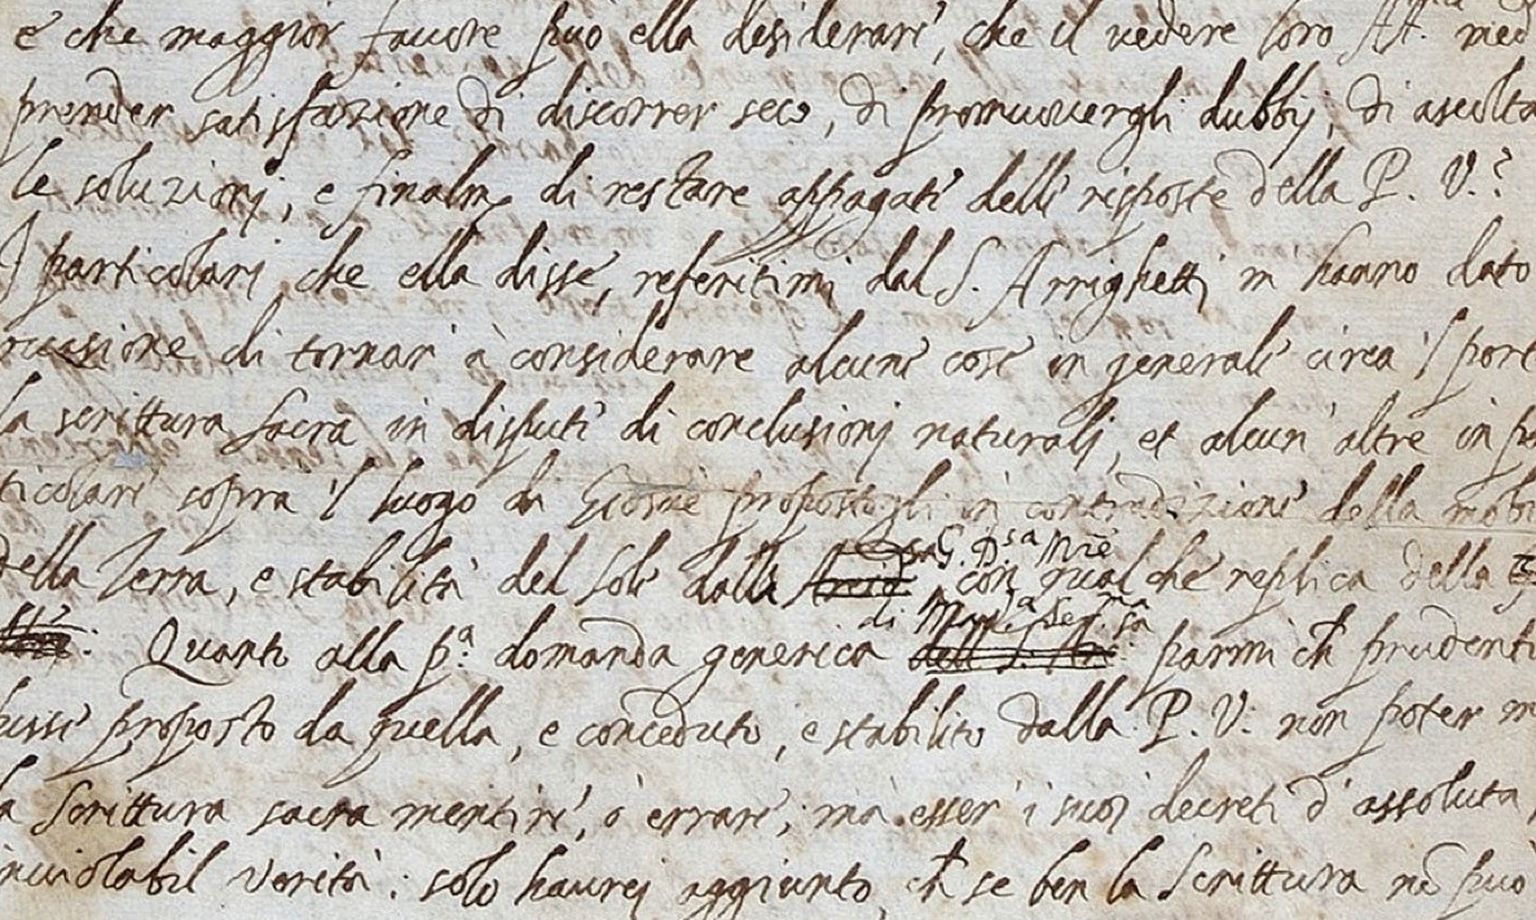 e che maggior favore può ella desiderare, che il vedere loro Alt. med
prender satisfazione di discorrer seco, di promuovergli dubbij, di ascolta
le soluzionj, e finalm di restare appagate delle risposte della P. V.?
I particolarj che ella disse, referitimi dal S. Arrighetti m'hanno dato
occasione di tornar à considerare alcune cose in generale circa 'l port
la scrittura sacra in dispute di conclusionj naturalj, et alcun' altre in pa
ticolare sopra 'l luogo di Giosuè propostogli in contradizione della mobi
sa G. D.sa Mre
della Terra, e stabilità del Sole dalla con qualche replica della
di Mad.a Ser.ma
Quanto alla p.a domanda generica parmi ch prudent
fusse proposto da quella, e conceduto, e stabilito dalla P. V. non poter m
la Scrittura sacra mentire, ò errare; ma esser i suoj decreti d'assoluta,
inviolabil verità: solo haurej aggiunto, ch se ben la Scrittura nō può